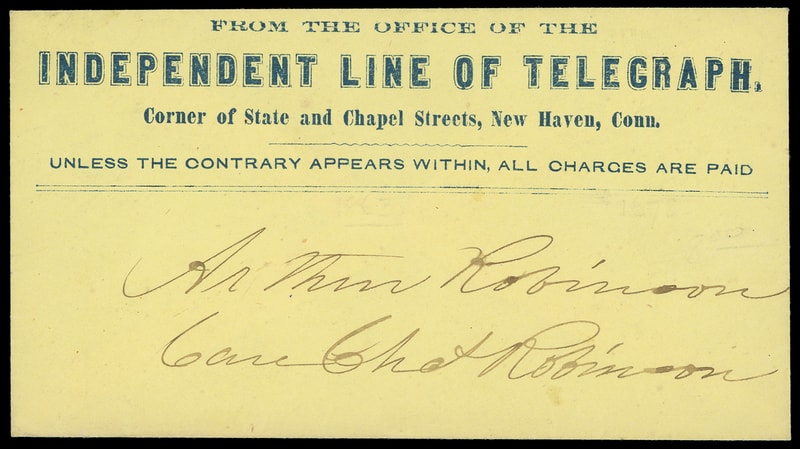 FROM THE OFFICE OF THE
INDEPENDENT LINE OF TELEGRAPH,
Corner of State and Chapel Streets, New Haven, Conn.
UNLESS THE CONTRARY APPEARS WITHIN, ALL CHARGES ARE PAID
Arthur Robinson
Care Chas Robinson